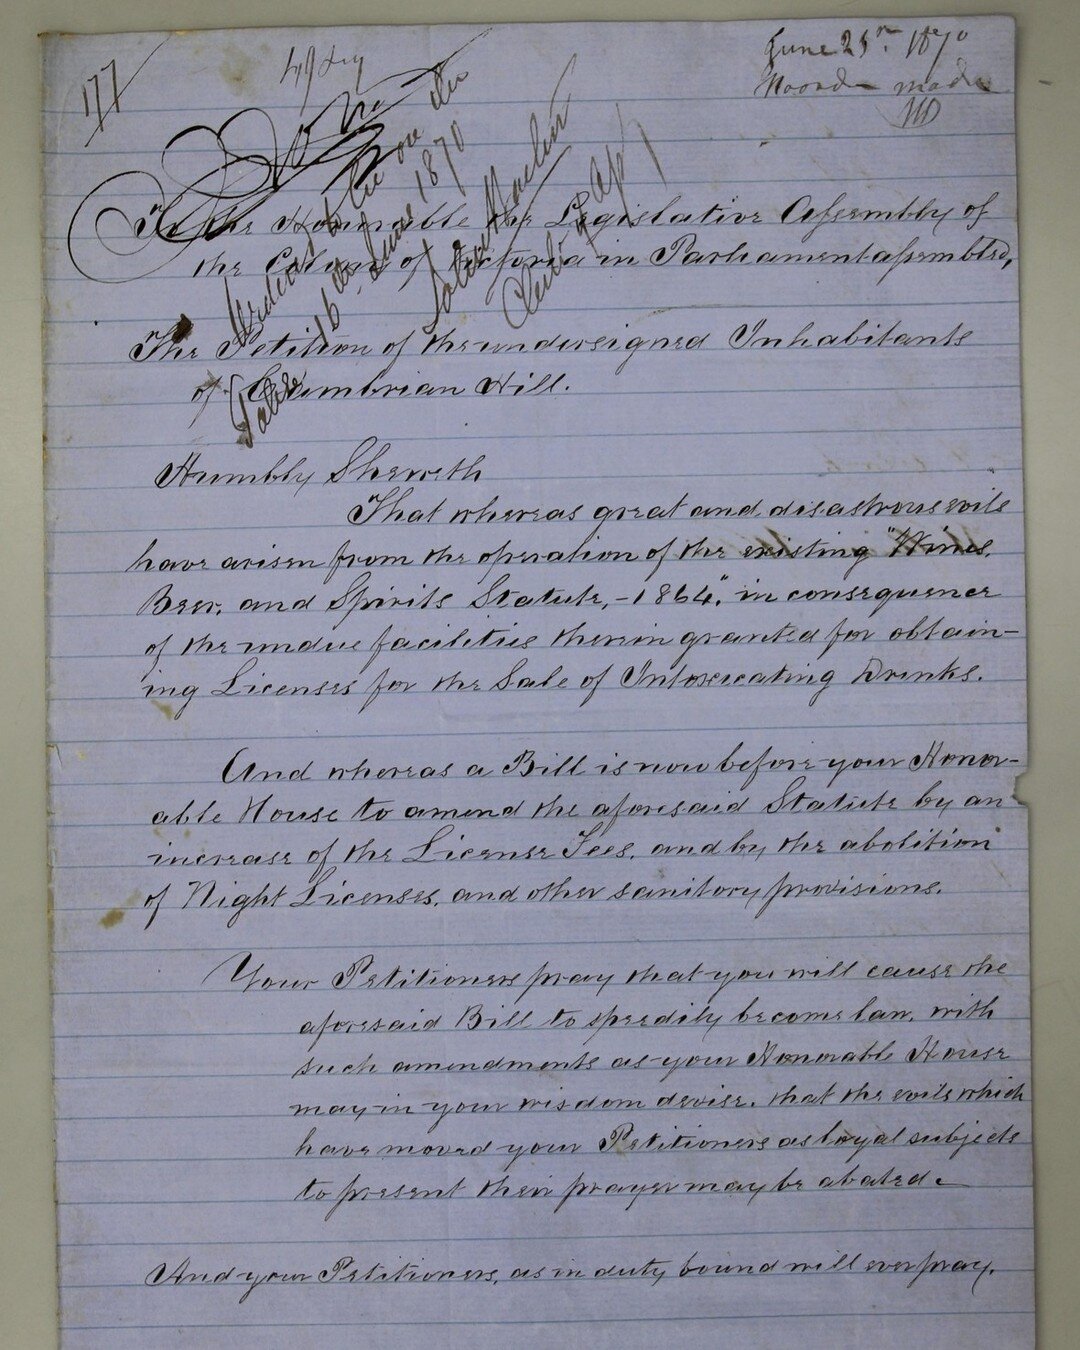 177
June 25th 1870
made
To the Honourable the Legislative Assembly of
the Colony of Victoria in Parliament assembled,
Ordered to lie on the
Table 16th June 1870
Clerk of Ass
The Petition of the undersigned Inhabitants
of Cambrian Hill.
Humbly Sheweth
That whereas great and disastrous evils
have arisen from the operation of the existing "Wines,
Beer, and Spirits Statute, - 1864", in consequence
of the undue facilities therein granted for obtain-
ing Licenses for the Sale of Intoxicating Drinks.
And whereas a Bill is now before your Honor-
able House to amend the aforesaid Statute by an
increase of the License Fees, and by the abolition
of Night Licenses, and other sanitory provisions.
Your Petitioners pray that you will cause the
aforesaid Bill to speedily become law, with
such amendments as your Honorable House
may in your wisdom devise, that the evils which
have moved your Petitioners as loyal subjects
to present their prayer may be abated.
And your Petitioners, as in duty bound will ever pray.